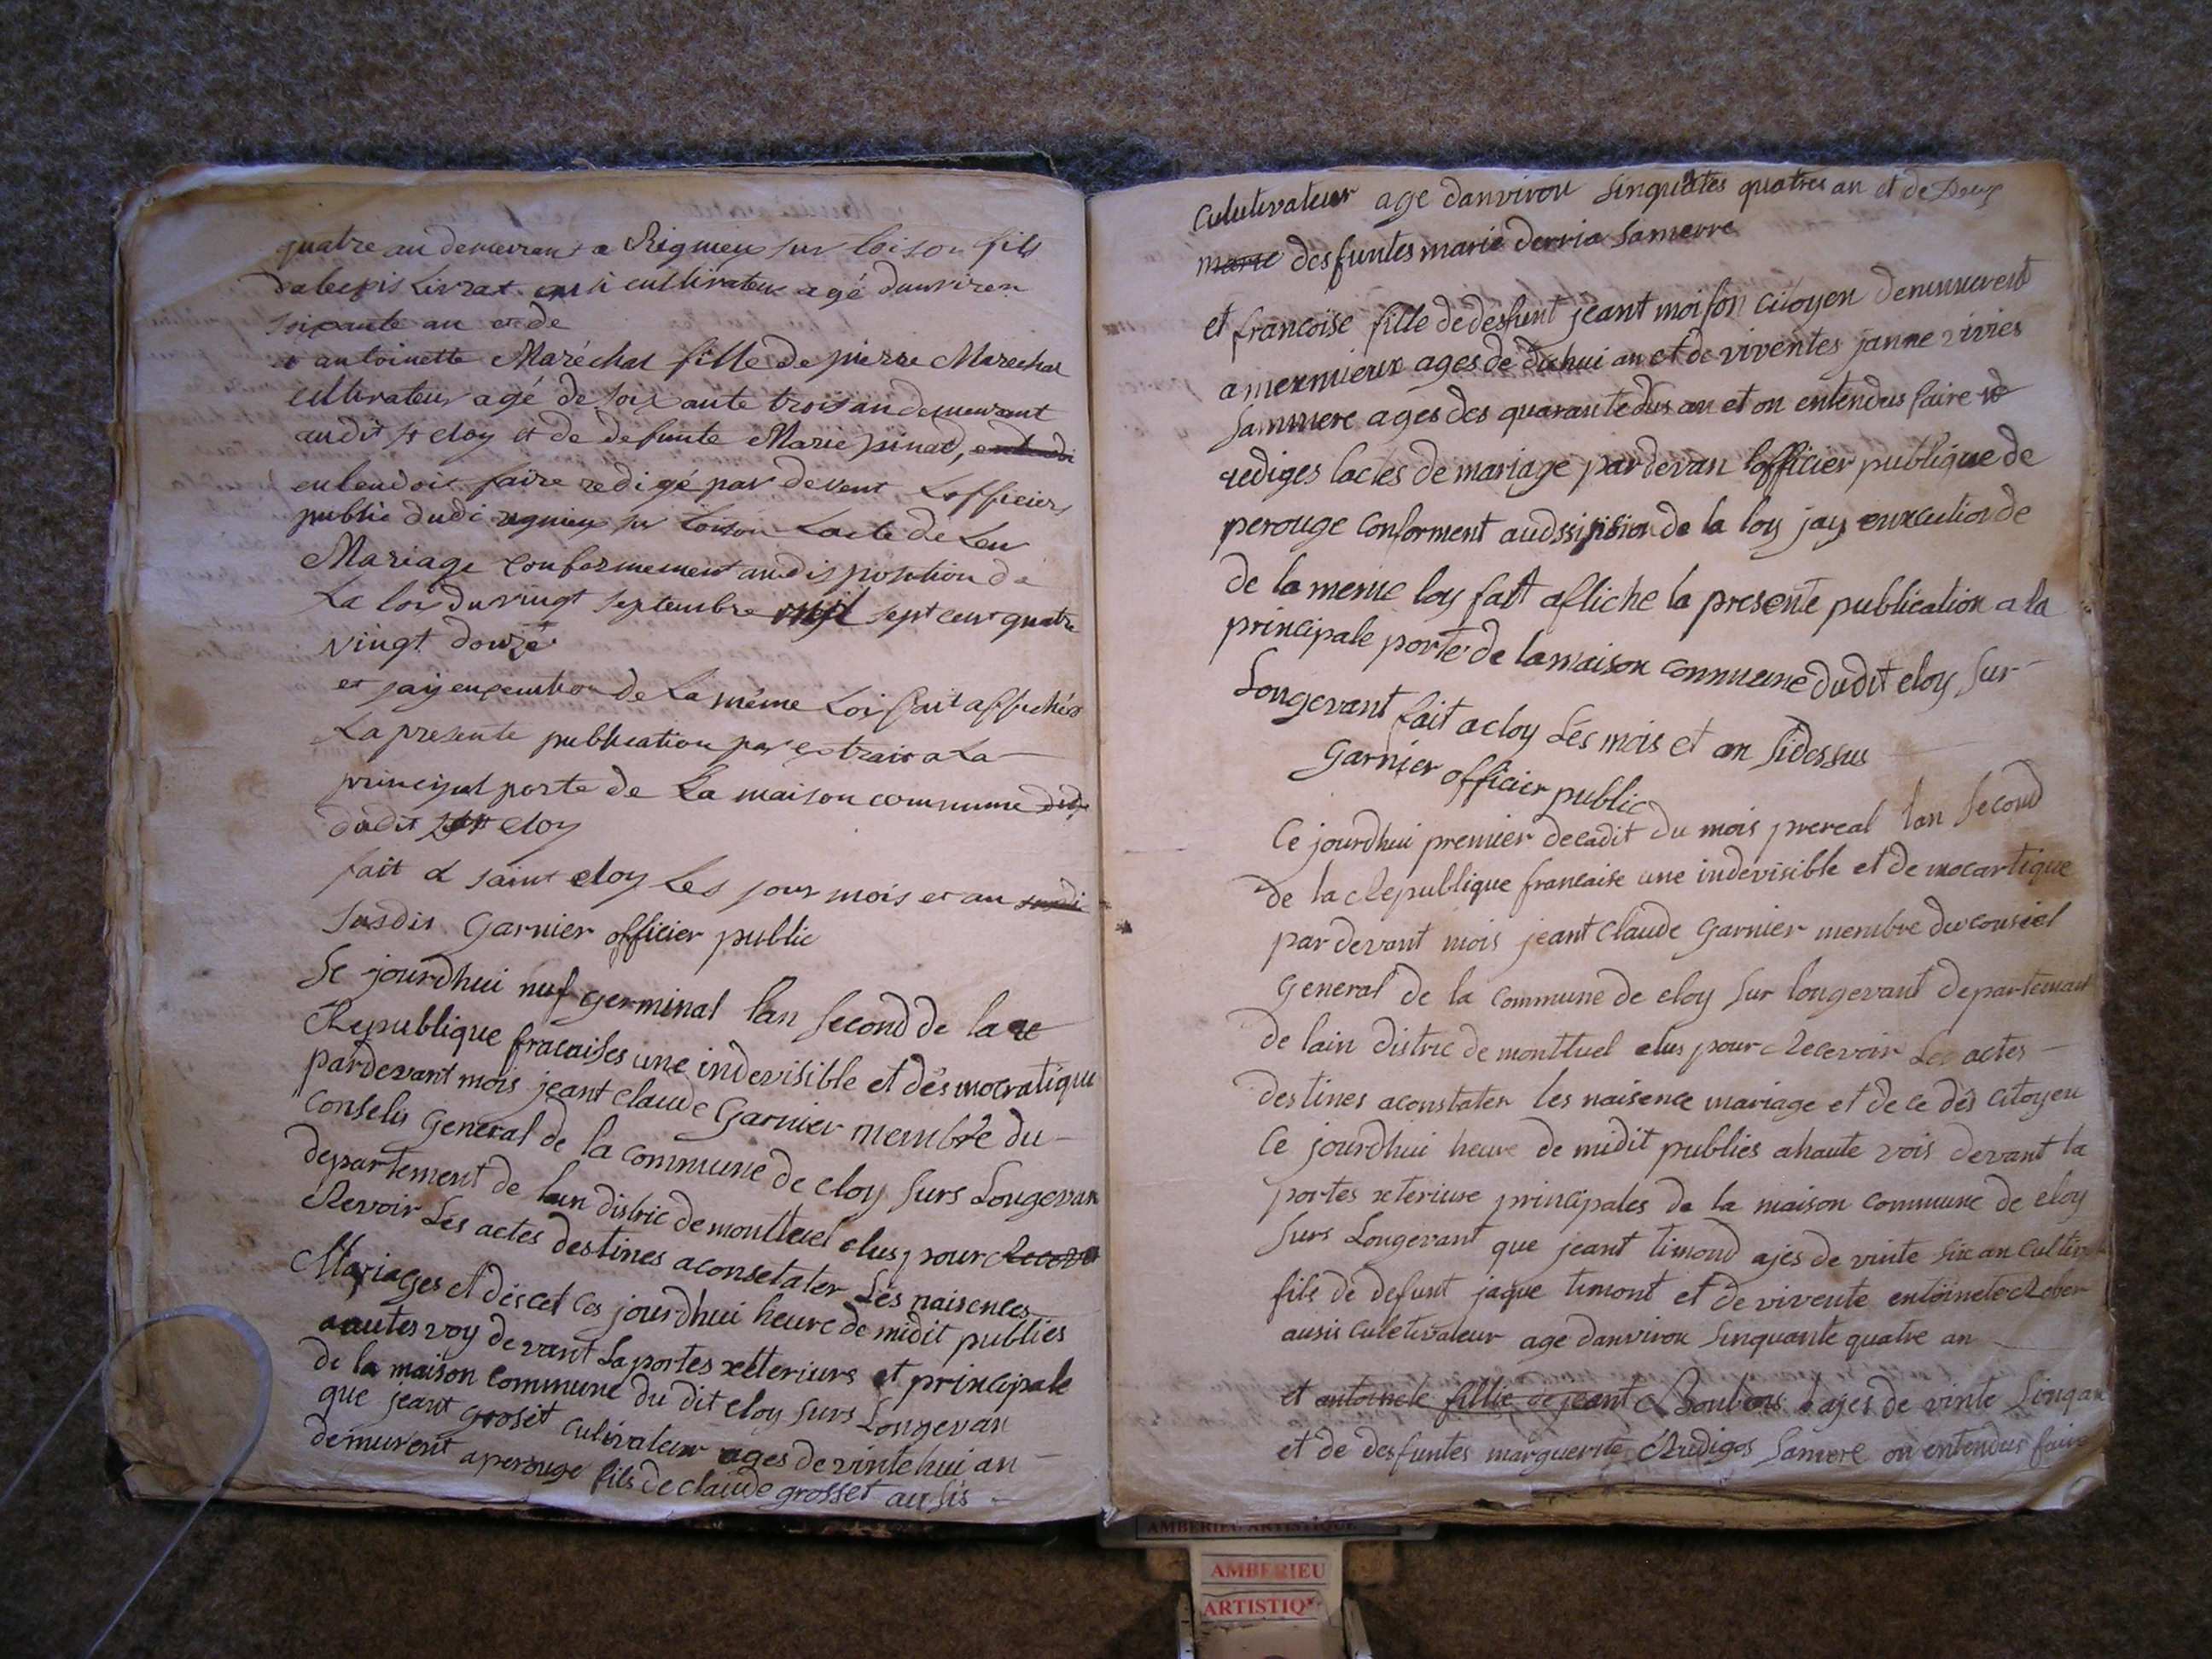 quatre an demeurant a Rignieu sur loison fils
Livrat cultivateur agé danviron
soixante an et de
et antoinette Maréchal fille de pierre Marechal
cultivateur agé de soixante trois an demeurant
audit st eloy et de defunte Marie pinad, entendu
entendoit faire redigé par devent Lofficiers
public dudi rignieu sur loison Lacte de Leur
Mariage conformement audisposition de
La loi du vingt septembre mil sept cent quatre
vingt douze
et jaÿ en execution de La même Loi fait affichés
La presente publication par extrait a La
principal porte de La maison commune dudi
dudit st eloy
fait a saint eloy Les jour mois et an susdi
susdit Garnier officier public
Se jourdhui nuf germinal lan second de la re
Republique fracaises une indevisible et desmocratique
pardevant mois jeant claude Garnier membre du
Conselis General de la commune de eloy surs Longevan
departement de lain distric de montluel elus pour Recevoir
Revoir Les actes destines aconsetater Les naisences
Mariages et descet Ces jourdhui heure de midit publies
aautes voy devant La portes xetteriurs et principale
de la maison commune du dit eloy surs Longevan
que jeant grosit culivateur ages de vinte hui an
demurent aperouge fils de claude grosset ausis
Culutivateur age danviron sinquates quatres an et de Deux
marie desfuntes marie derria samerre
et francoise fille dedesfunt jeant moison citoyen demeurent
amexmieux ages de dixhui an et de viventes janne vivies
sammere ages des quarantedus an et on entendus faire re
rediges lactes de mariage pardevan lofficier publique de
perouge Conforment audssipision de la loy jay enxcution de
de la meme loy fait afliche la presente publication a la
principale porte de lamaison commune dudit eloy sur
Longevant fait a eloy Les mois et an sidessus
Garnier officier public
Ce jourdhui premier decadit du mois prereal lan second
de la Republique francaise une indevisible et de mocartique
par devant mois jeant claude Garnier membre du consiel
General de la commune de eloy sur longevant departemant
de lain distric de montluel elus pour Recevoir Les actes
destines aconstater les naisence mariage et de ce des citoyen
Ce jourdhui heure de midit publies ahaute vois devant la
portes xteriure principales de la maison commune de eloy
surs Longevant que jeant timond ajes de vinte six an cultiv
fils de defunt jaque timont et de vivente entoinete Rober
ausis culetivateur age danviron sinquante quatre an
et antoinete fillie de jeant Boubous ajes de vinte sinq an
et de desfuntes marguerite Rudigos samere on entendus faire
AMBERIEU ARTISTIQUE
AMBERIEU
ARTISTIQ